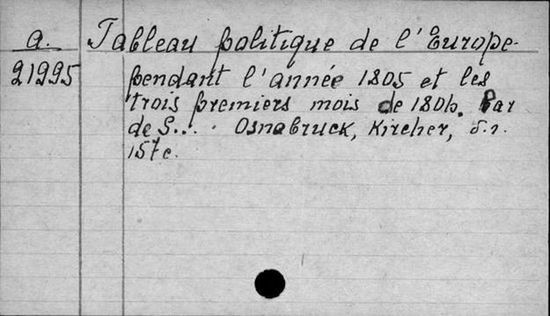 a. Tableau politique de l'Europe
21295 pendant l'année 1805 et les
trois premiers mois de 180h. Par
de S... . Osnabruck, Kircher, s.a.
157c.